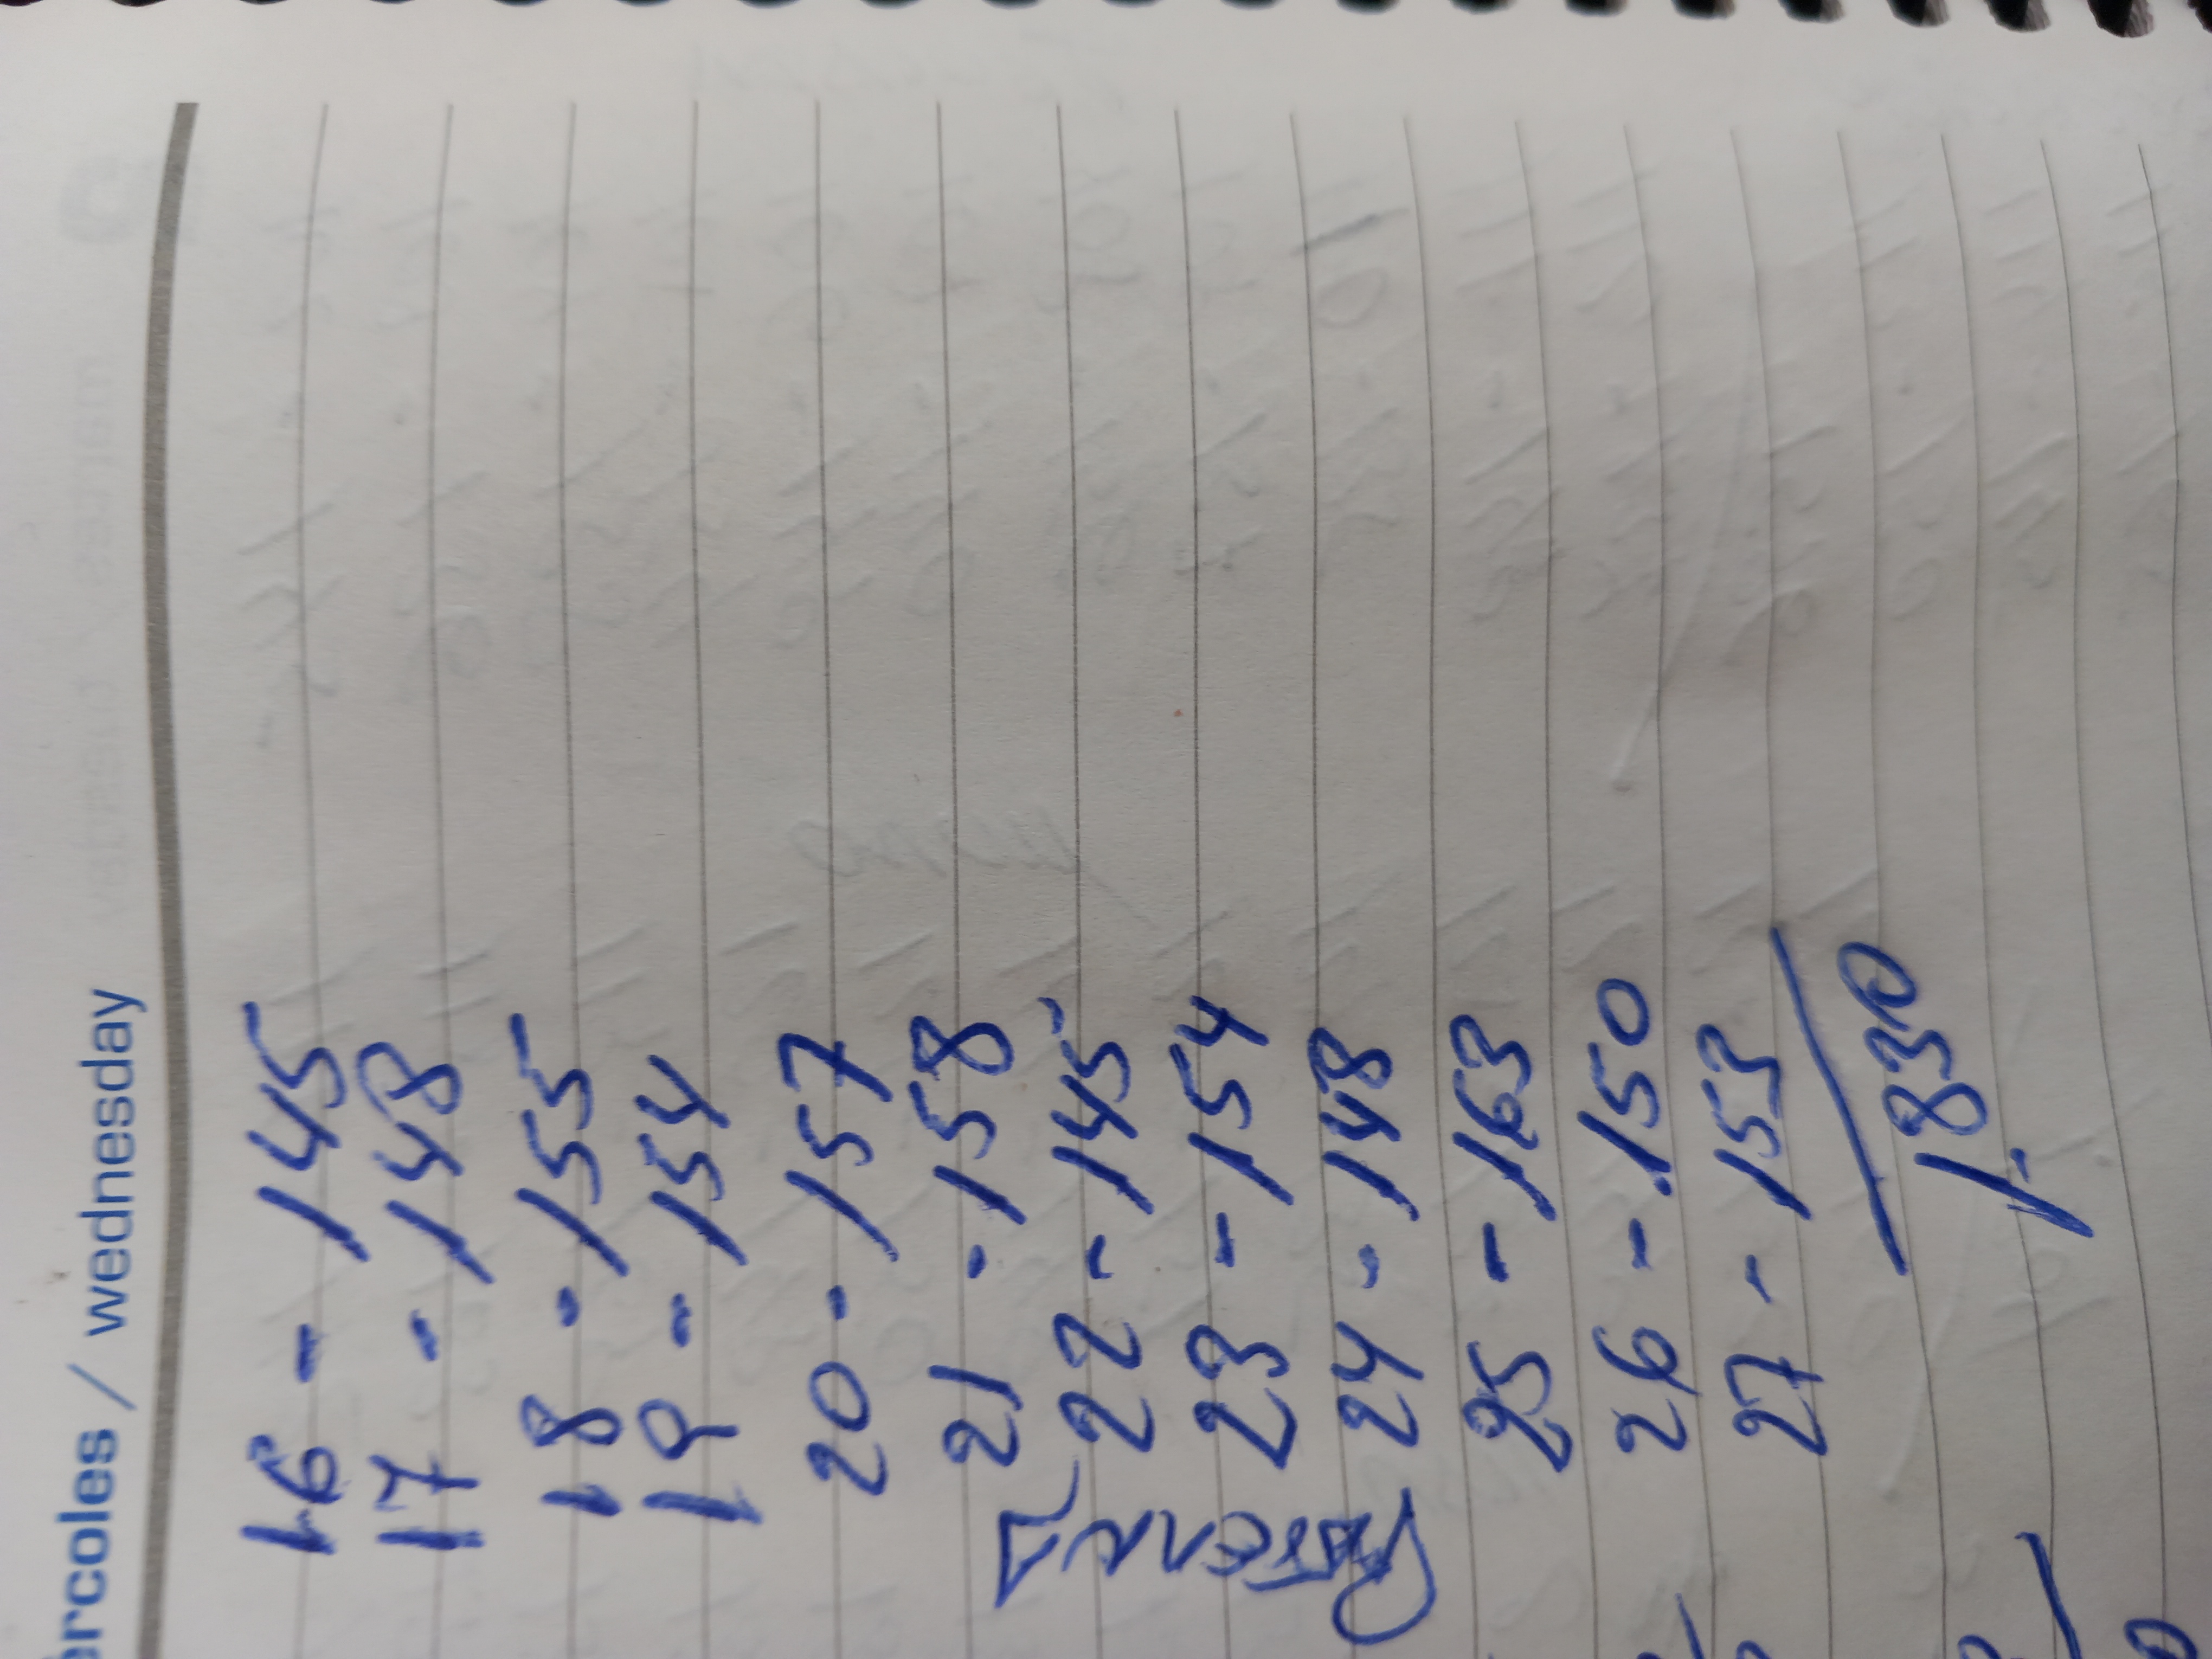 ércoles / wednesday
16 - 145
17 - 148
18 - 155
19 - 154
20 - 157
21 - 158
22 - 145
23 - 154
24 - 148
25 - 163
26 - 150
27 - 153
1.830